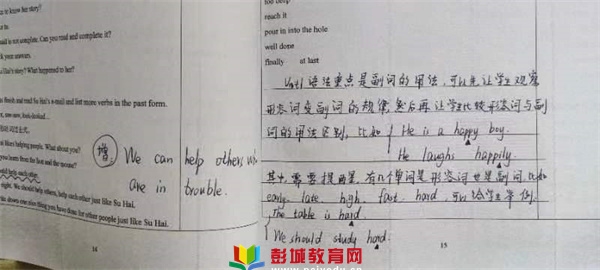 to know her story?
mail is not complete. Can you read and complete it?
your answers.
Hai's story? What happened to her?
and list more verbs in the past form.
likes helping people. What about you?
right. We should help others, help each other just like Su Hai.
one thing you have done for other people just like Su Hai.
增: We can help others who
are in trouble.
16
reach it
pour in into the hole
well done
finally at last
Unit1 语法重点是副词的用法,可以先让学生观察
形容词变副词的规律,然后再让学生比较形容词与副
词的用法区别,比如 He is a happy boy.
He laughs happily.
其中需要提两点,有几个单词是形容词也是副词,比如
early, late, high, fast, hard, 可以给学生举例.
The table is hard.
We should study hard.
15
彭城教育网